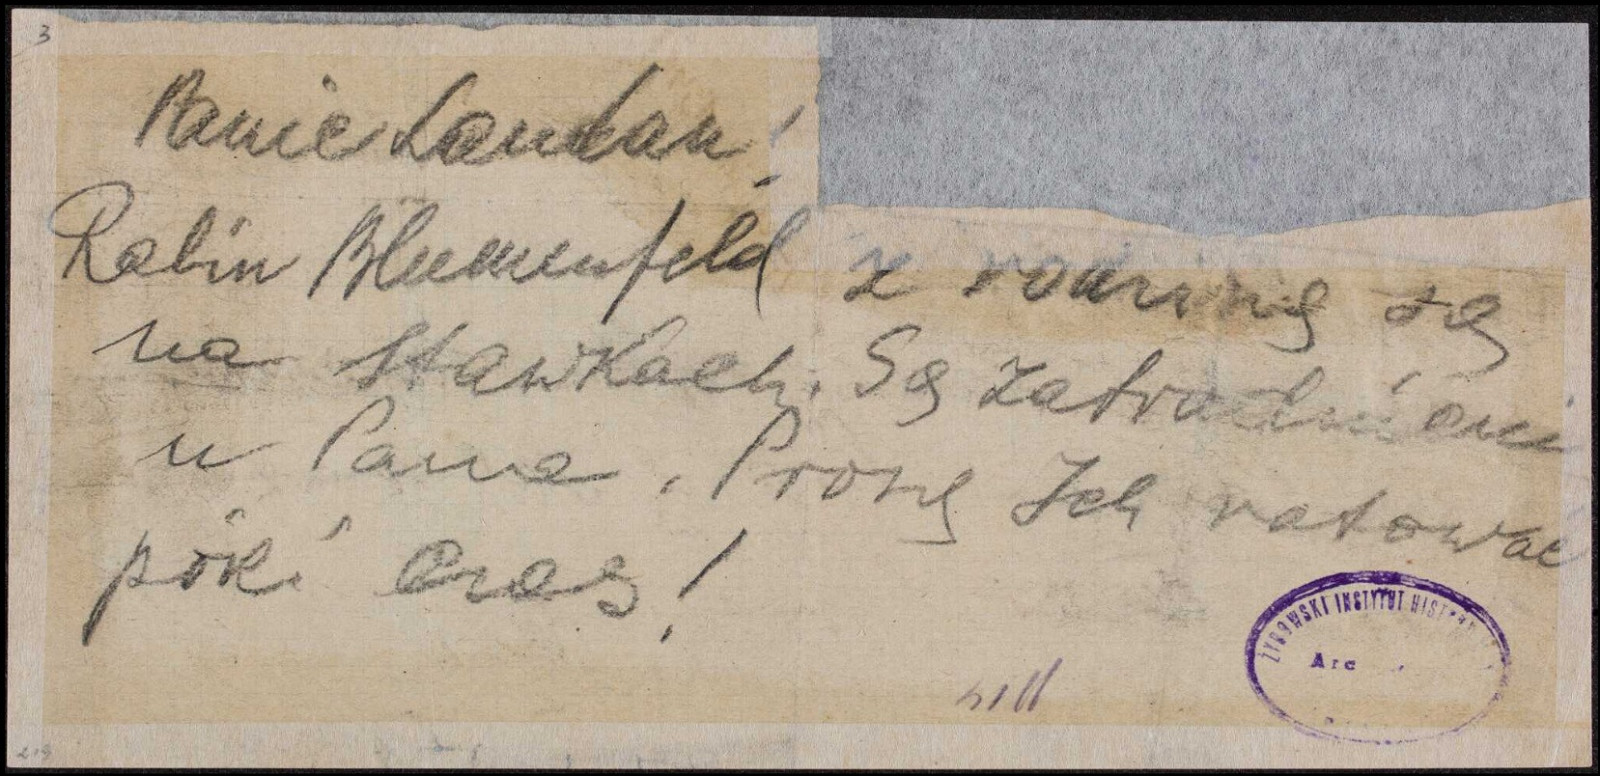 3
Panie Landau!
Rabin Blumenfeld z rodziną są
na Stawkach. Są zatrudnieni
u Pana. Proszę Ich ratować
póki czas!
ŻYDOWSKI INSTYTUT
Arc
219